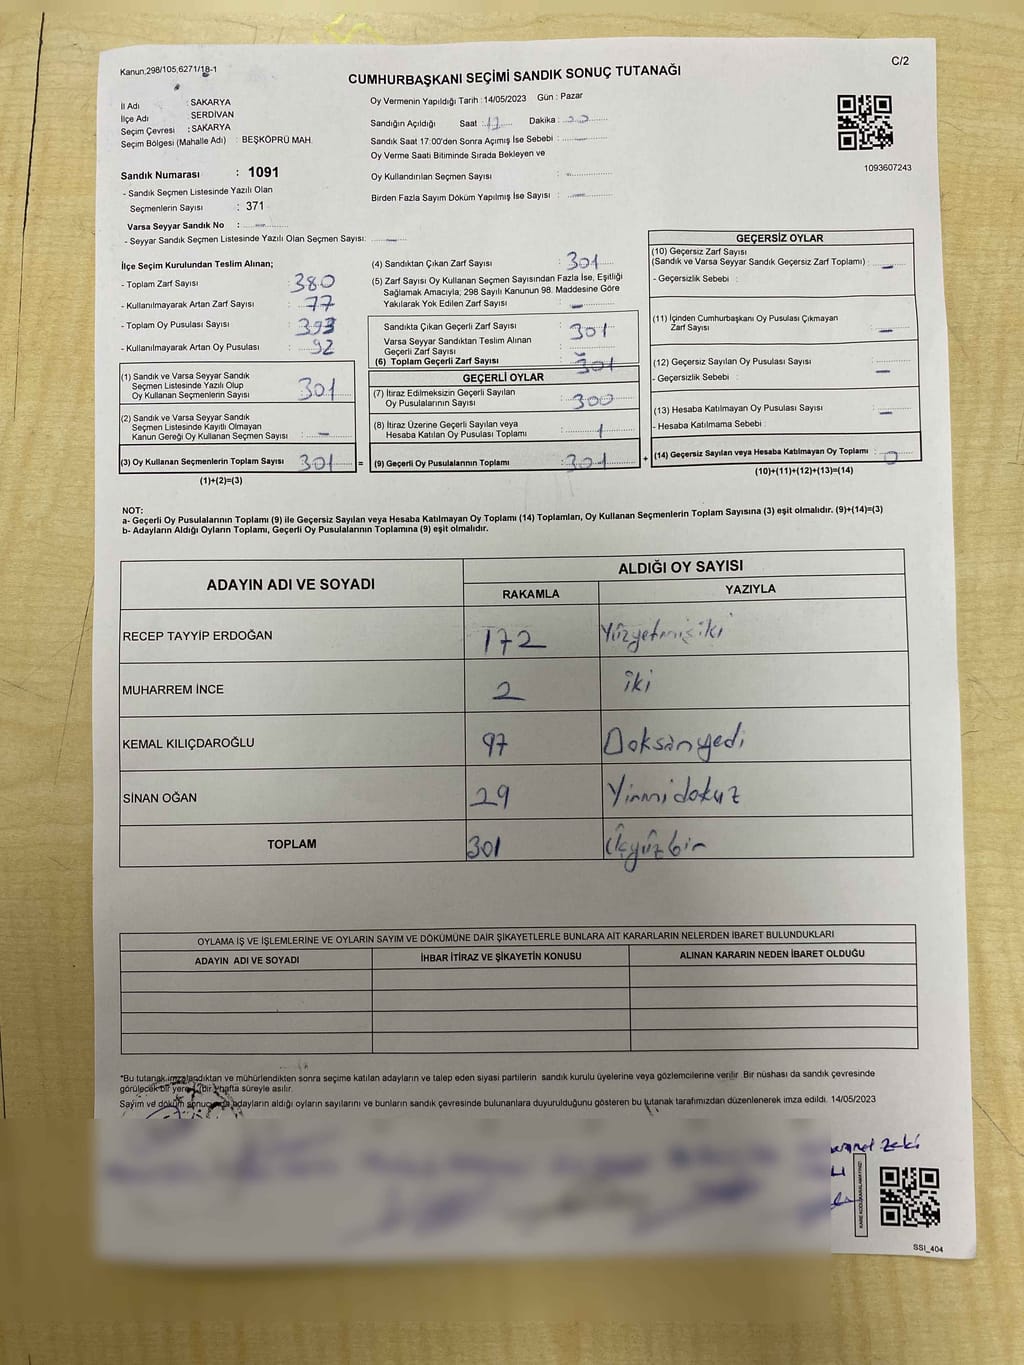 Kanun,298/105,6271/18-1
C/2
CUMHURBAŞKANI SEÇİMİ SANDIK SONUÇ TUTANAĞI
İl Adı : SAKARYA
İlçe Adı SERDİVAN
Seçim Çevresi : SAKARYA
Seçim Bölgesi (Mahalle Adı) : BEŞKÖPRÜ MAH.
Oy Vermenin Yapıldığı Tarih : 14/05/2023 Gün : Pazar
Sandığın Açıldığı Saat : 17 Dakika :
Sandık Saat 17:00'den Sonra Açımış İse Sebebi :
Oy Verme Saati Bitiminde Sırada Bekleyen ve
Oy Kullandırılan Seçmen Sayısı :
Birden Fazla Sayım Döküm Yapılmış İse Sayısı :
1093607243
Sandık Numarası : 1091
- Sandık Seçmen Listesinde Yazılı Olan
Seçmenlerin Sayısı : 371
Varsa Seyyar Sandık No :
- Seyyar Sandık Seçmen Listesinde Yazılı Olan Seçmen Sayısı:
İlçe Seçim Kurulundan Teslim Alınan;
- Toplam Zarf Sayısı : 380
- Kullanılmayarak Artan Zarf Sayısı : 77
- Toplam Oy Pusulası Sayısı : 393
- Kullanılmayarak Artan Oy Pusulası : 92
(1) Sandık ve Varsa Seyyar Sandık
Seçmen Listesinde Yazılı Olup
Oy Kullanan Seçmenlerin Sayısı : 301
(2) Sandık ve Varsa Seyyar Sandık
Seçmen Listesinde Kayıtlı Olmayan
Kanun Gereği Oy Kullanan Seçmen Sayısı : –
(3) Oy Kullanan Seçmenlerin Toplam Sayısı : 301 =
(1)+(2)=(3)
(4) Sandıktan Çıkan Zarf Sayısı : 301
(5) Zarf Sayısı Oy Kullanan Seçmen Sayısından Fazla İse, Eşitliği
Sağlamak Amacıyla; 298 Sayılı Kanunun 98. Maddesine Göre
Yakılarak Yok Edilen Zarf Sayısı : –
Sandıkta Çıkan Geçerli Zarf Sayısı : 301
Varsa Seyyar Sandıktan Teslim Alınan
Geçerli Zarf Sayısı :
(6) Toplam Geçerli Zarf Sayısı : 301
GEÇERLİ OYLAR
(7) İtiraz Edilmeksizin Geçerli Sayılan
Oy Pusulalarının Sayısı : 300
(8) İtiraz Üzerine Geçerli Sayılan veya
Hesaba Katılan Oy Pusulası Toplamı : 1
(9) Geçerli Oy Pusulalarının Toplamı : 301 +
GEÇERSİZ OYLAR
(10) Geçersiz Zarf Sayısı
(Sandık ve Varsa Seyyar Sandık Geçersiz Zarf Toplamı) : –
- Geçersizlik Sebebi :
(11) İçinden Cumhurbaşkanı Oy Pusulası Çıkmayan
Zarf Sayısı : –
(12) Geçersiz Sayılan Oy Pusulası Sayısı : –
- Geçersizlik Sebebi :
(13) Hesaba Katılmayan Oy Pusulası Sayısı : –
- Hesaba Katılmama Sebebi :
(14) Geçersiz Sayılan veya Hesaba Katılmayan Oy Toplamı : 0
(10)+(11)+(12)+(13)=(14)
NOT:
a- Geçerli Oy Pusulalarının Toplamı (9) ile Geçersiz Sayılan veya Hesaba Katılmayan Oy Toplamı (14) Toplamları, Oy Kullanan Seçmenlerin Toplam Sayısına (3) eşit olmalıdır. (9)+(14)=(3)
b- Adayların Aldığı Oyların Toplamı, Geçerli Oy Pusulalarının Toplamına (9) eşit olmalıdır.
ADAYIN ADI VE SOYADI ALDIĞI OY SAYISI
RAKAMLA YAZIYLA
RECEP TAYYİP ERDOĞAN 172 Yüzyetmişiki
MUHARREM İNCE 2 iki
KEMAL KILIÇDAROĞLU 97 Doksanyedi
SİNAN OĞAN 29 Yirmidokuz
TOPLAM 301 Üçyüzbir
OYLAMA İŞ VE İŞLEMLERİNE VE OYLARIN SAYIM VE DÖKÜMÜNE DAİR ŞİKAYETLERLE BUNLARA AİT KARARLARIN NELERDEN İBARET BULUNDUKLARI
ADAYIN ADI VE SOYADI İHBAR İTİRAZ VE ŞİKAYETİN KONUSU ALINAN KARARIN NEDEN İBARET OLDUĞU
*Bu tutanak imzalandıktan ve mühürlendikten sonra seçime katılan adayların ve talep eden siyasi partilerin sandık kurulu üyelerine veya gözlemcilerine verilir. Bir nüshası da sandık çevresinde
görülecek bir yere bir hafta süreyle asılır.
Sayım ve döküm sonucunda adayların aldığı oyların sayılarını ve bunların sandık çevresinde bulunanlara duyurulduğunu gösteren bu tutanak tarafımızdan düzenlenerek imza edildi. 14/05/2023
Zeki
SSI_404